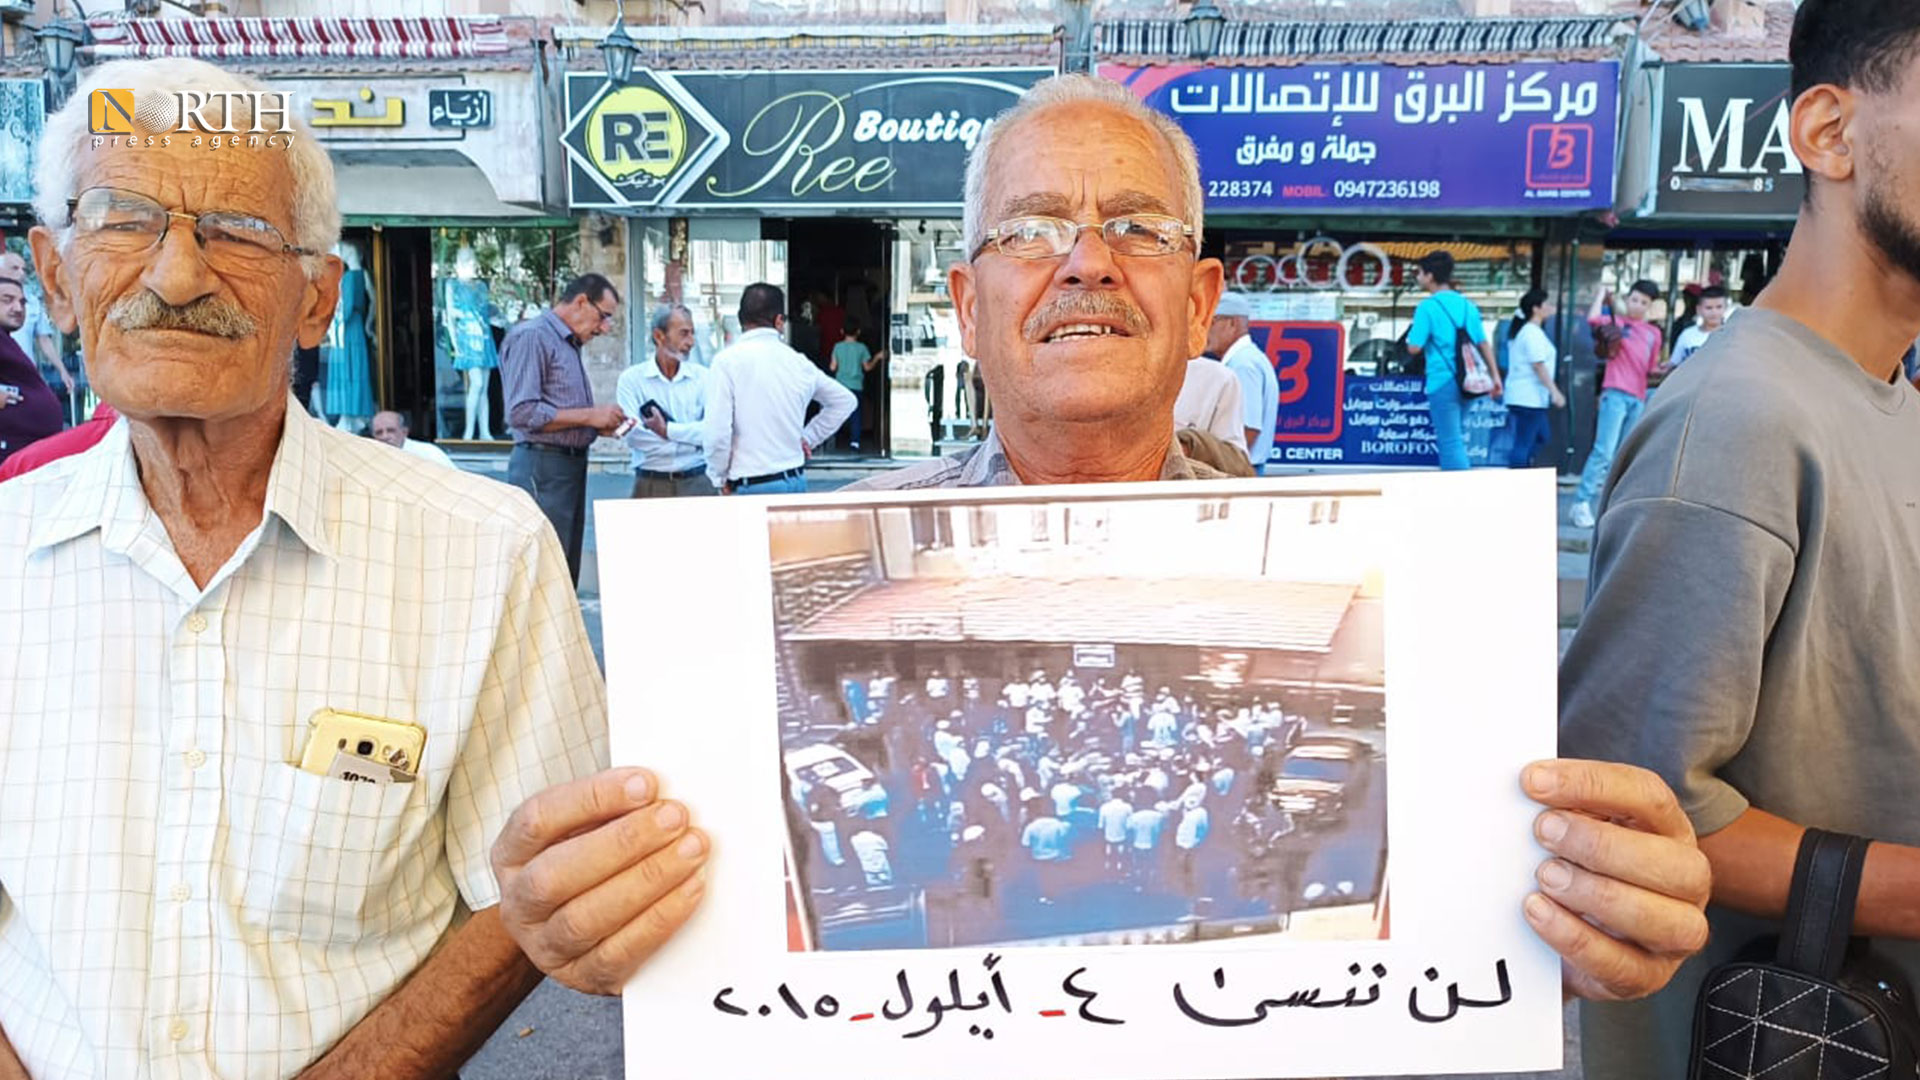 NORTH
press agency
ند
أزياء
RE
بوتيك
Ree
Boutiq
مركز البرق للإتصالات
جملة و مفرق
228374 MOBIL: 0947236198
B
AL BARQ CENTER
MA
85
B
Q CENTER
BOROFON
1073
لن ننسى ٤_أيلول_٢٠١٥